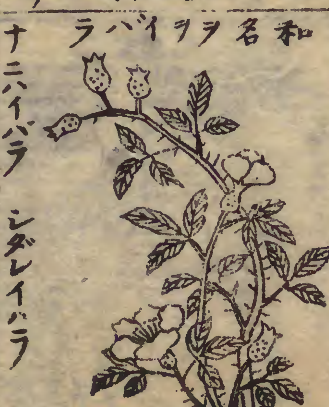 和名ヲヲイバラ
ナニハイバラ シダレイバラ